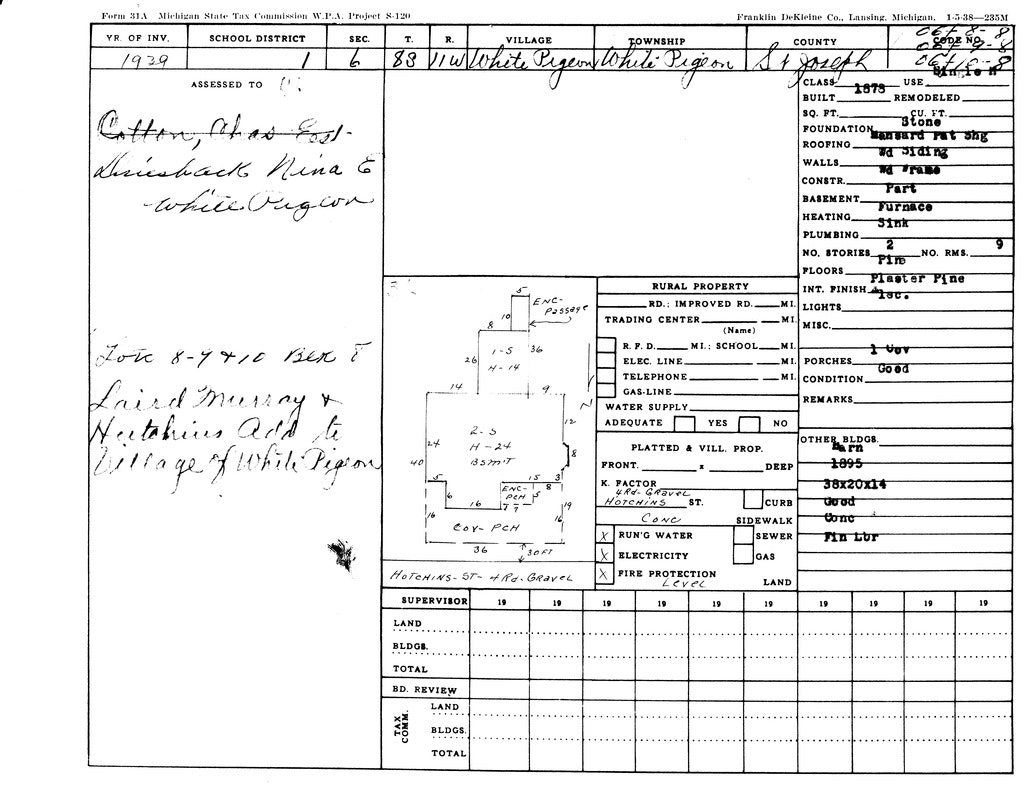 Form 31A Michigan State Tax Commission W.P.A. Project S-120
Franklin DeKleine Co., Lansing, Michigan. 1-5-38—235M
YR. OF INV. SCHOOL DISTRICT SEC. T. R. VILLAGE TOWNSHIP COUNTY CODE NO.
067 8-8
067-9-8
067 10-8
1939 1 6 8S 11W White Pigeon White Pigeon St Joseph
ASSESSED TO
Cotton, Chas Est.
Nina E
White Pigeon
Lots 8-9 & 10 Blk
Laird Murray &
Hutchins Add to
Village of White Pigeon
CLASS USE Single H
BUILT 1873 REMODELED
SQ. FT. CU. FT.
FOUNDATION Stone
ROOFING Mansard Pat Shg
WALLS Wd Siding
CONSTR. Wd Frame
BASEMENT Part
HEATING Furnace
PLUMBING Sink
NO. STORIES 2 NO. RMS. 9
FLOORS Pine
INT. FINISH Plaster Pine
LIGHTS Elec.
MISC.
PORCHES 1 Cov
CONDITION Good
REMARKS
OTHER BLDGS.
Barn
1895
38x20x14
Good
Conc
Pin Lbr
5
10
ENC-
PASSAGE
8
26
1-S
H-14
36
14
9
N
12
24
40
2-S
H-24
BSMT
8
5
6
16
15
3
ENC-
PCH
8
5
7
16
19
16
COV-PCH
36
30 FT
HOTCHINS-ST- 4 Rd-GRAVEL
RURAL PROPERTY
RD.; IMPROVED RD. MI.
TRADING CENTER MI.
(Name)
R. F. D. MI.; SCHOOL MI.
ELEC. LINE MI.
TELEPHONE MI.
GAS-LINE
WATER SUPPLY
ADEQUATE YES NO
PLATTED & VILL. PROP.
FRONT. x DEEP
K. FACTOR
4 Rd-GRAVEL
HOTCHINS ST. CURB
CONC SIDEWALK
X RUN'G WATER SEWER
X ELECTRICITY GAS
X FIRE PROTECTION
LEVEL LAND
SUPERVISOR 19 19 19 19 19 19 19 19 19 19
LAND
BLDGS.
TOTAL
BD. REVIEW
TAX COMM.
LAND
BLDGS.
TOTAL